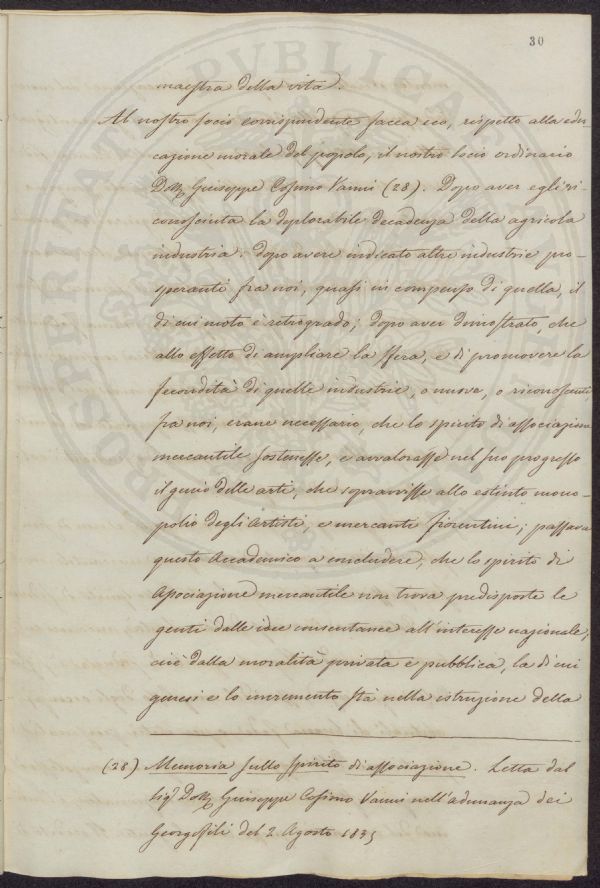 30
maestra della vita.
Al nostro socio corrispondente facea eco, rispetto alla edu-
cazione morale del popolo, il nostro socio ordinario
Dott. Giuseppe Cosimo Vanni (28). Dopo aver egli ri-
conosciuta la deplorabile decadenza della agricola
industria: dopo avere indicato altre industrie pro-
speranti fra noi, quasi in compenso di quella, il
di cui moto è retrogrado; dopo aver dimostrato, che
allo effetto di ampliare la sfera, e di promovere la
fecondità di quelle industrie, o nuove, o riconoscenti
fra noi, erane necessario, che lo spirito di associazione
mercantile sostenesse, e avvalorasse nel suo progresso
il genio delle arti, che sopravvisse allo estinto mono-
polio degli Artisti, e mercanti fiorentini; passava
questo Accademico a concludere, che lo spirito di
Associazione mercantile non trova predisposte le
genti dalle idee consentanee all'interesse nazionale,
cioè dalla moralità privata e pubblica, la di cui
genesi e lo incremento stà nella istruzione della
(28) Memoria sullo spirito di associazione. Letta dal
Sigr Dott. Giuseppe Cosimo Vanni nell'adunanza dei
Georgofili del 2 Agosto 1835
PROSPERITATI PVBLICAE